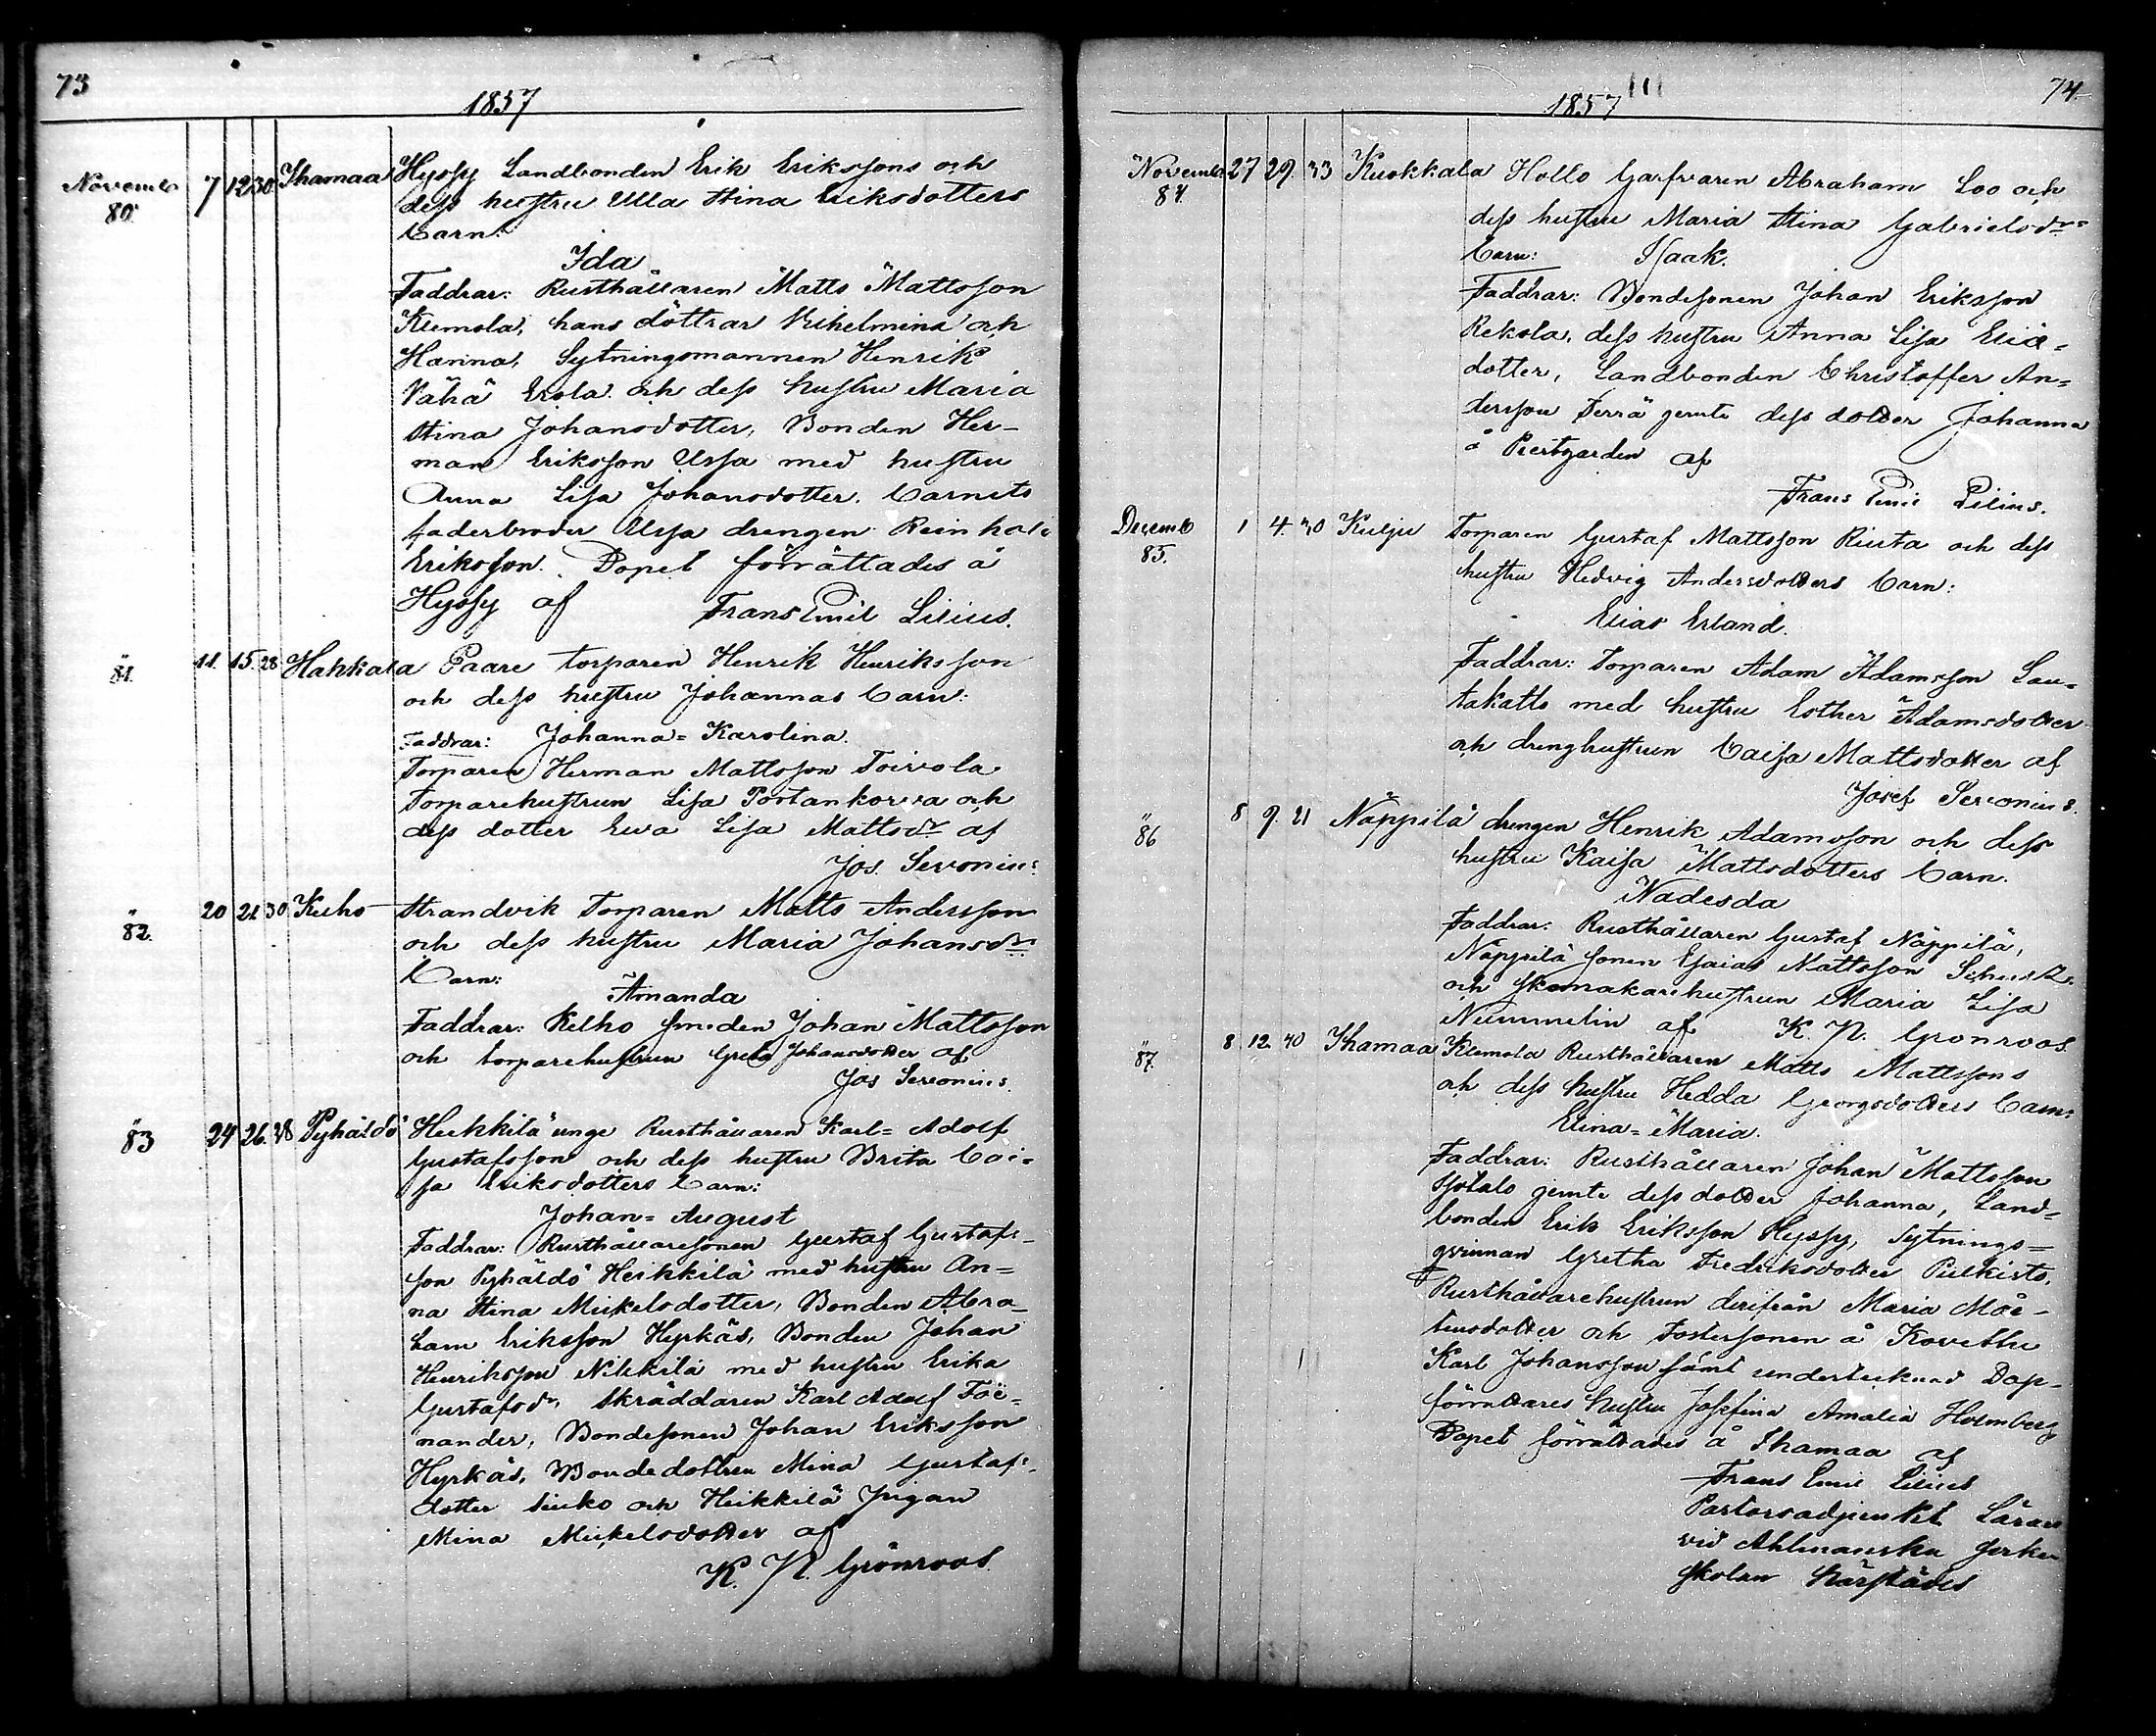 73
1857
Novemb 7 12 30 Ihamaa Hyssy Landbonden Erik Erikssons och
80. dess hustru Ulla Stina Eriksdotters
barn:
Ida
Faddrar: Rusthållaren Matts Mattsson
Klemola, hans döttrar Vilhelmina och
Hanna, Sytningsmannen Henrik
Vähä Erola och dess hustru Maria
Stina Johansdotter, Bonden Her-
man Eriksson Ussa med hustru
Anna Lisa Johansdotter. Barnets
faderbroder Ussa drengen Reinhold
Eriksson. Dopet förrättades å
Hyssy af Frans Emil Lilius.
" 81. 11. 15. 28 Hahkala Paare torparen Henrik Henriksson
och dess hustru Johannas barn:
Faddrar: Johanna=Karolina.
Torparen Herman Mattsson Toivola
Torparehustrun Lisa Portankorva och
dess dotter Ewa Lisa Mattsdr af
Jos. Servonius
" 82. 20 21 30 Kulho Strandvik Torparen Matts Andersson
och dess hustru Maria Johansdrs
barn:
Amanda
Faddrar: Kelho smeden Johan Mattsson
och torparehustrun Greta Johansdotter af
Jos Servonius.
" 83 24 26. 28 Pyhäldö Heikkilä unge Rusthållaren Karl=Adolf
Gustafsson och dess hustru Brita Cai=
sa Eriksdotters barn:
Johan=August
Faddrar: Rusthållaresonen Gustaf Gustafs-
son Pyhäldö Heikkilä med hustru An=
na Stina Mickelsdotter, Bonden Abra-
ham Eriksson Hyrkäs, Bonden Johan
Henriksson Nikkilä med hustru Erika
Gustafsdr, Skräddaren Karl Adolf För-
nander, Bondesonen Johan Eriksson
Hyrkäs, Bondedottren Mina Gustafs-
dotter och Heikkilä pigan
Mina Mickelsdotter af
K. N. Grönroos.
74.
1857
Novemb 27 29. 33 Kuokkala Hollo Garfvaren Abraham Loo och
84. dess hustru Maria Stina Gabrielsdrs
barn: Isaak.
Faddrar: Bondesonen Johan Eriksson
Rekola, dess hustru Anna Lisa Eliæ=
dotter, Landbonden Christoffer An=
dersson Perrä jemte dess dotter Johanna
å Prestgården af
Frans Emil Lilius.
Decemb 1 4. 30 Kulju Torparen Gustaf Mattsson Riusta och dess
85. hustru Hedvig Andersdotters barn:
Elias Erland.
Faddrar: Torparen Adam Adamsson Lau=
takatto med hustru Esther Adamsdotter
och drenghustrun Caisa Mattsdotter af
Josef Servonius.
" 86 8 9. 21 Näppilä drengen Henrik Adamsson och dess
hustru Kaisa Mattsdotters barn.
Nadesda
Faddrar: Rusthållaren Gustaf Näppilä,
Näppilä sonen Esaias Mattsson
och skomakarehustrun Maria Lisa
Nummelin af K. N. Grönroos.
" 87. 8. 12. 40 Ihamaa Klemola Rusthållaren Matts Mattssons
och dess hustru Hedda Georgsdotters barn:
Elina=Maria.
Faddrar: Rusthållaren Johan Mattsson
Isotalo jemte dess dotter Johanna, Land=
bonden Erik Eriksson Hyssy, Sytnings=
qvinnan Gretha Fredriksdotter Pulkisto,
Rusthållarehustrun derifrån Maria Mår-
tensdotter och Fostersonen å Kovettu
Karl Johansson samt undertecknad Dop-
förrättares hustru Josefina Amalia Holmberg
Dopet förrättades å Ihamaa af
Frans Emil Lilius
Pastorsadjunkt Lärare
vid Ahlmanska
skolan härstädes